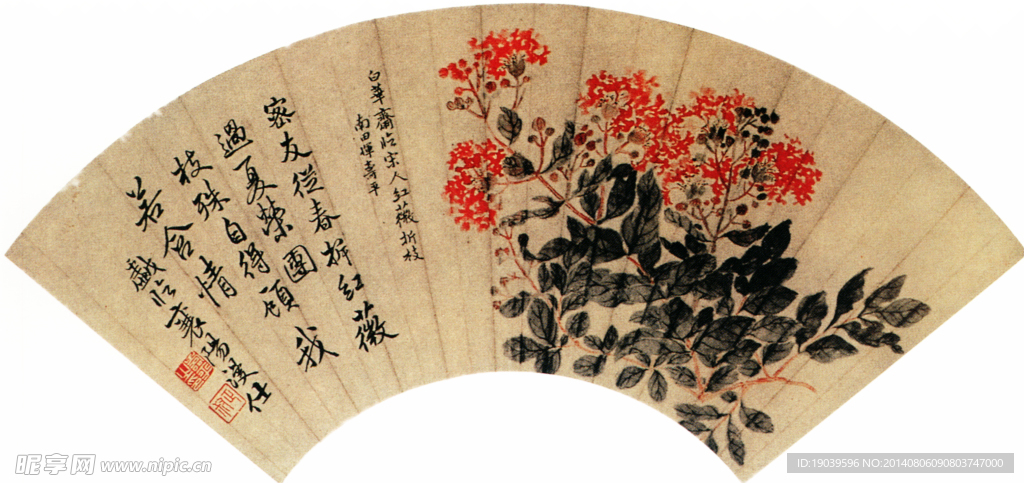 白華齋臨宋人紅薇折枝
南田惲壽平
密友從春拆紅薇
過夏榮團
枝殊自得頋我
若含情
戲臨襄陽漫仕
昵享网 www.nipic.cn
ID:19039596 NO:20140806090803747000